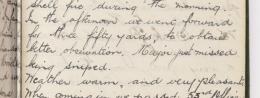 shell fire during the morning.
In the afternoon we went forward
for three fifty yards, to obtain
better observation. Major just missed
being sniped.
Weather warm, and very pleasant.
When coming in we passed 53rd